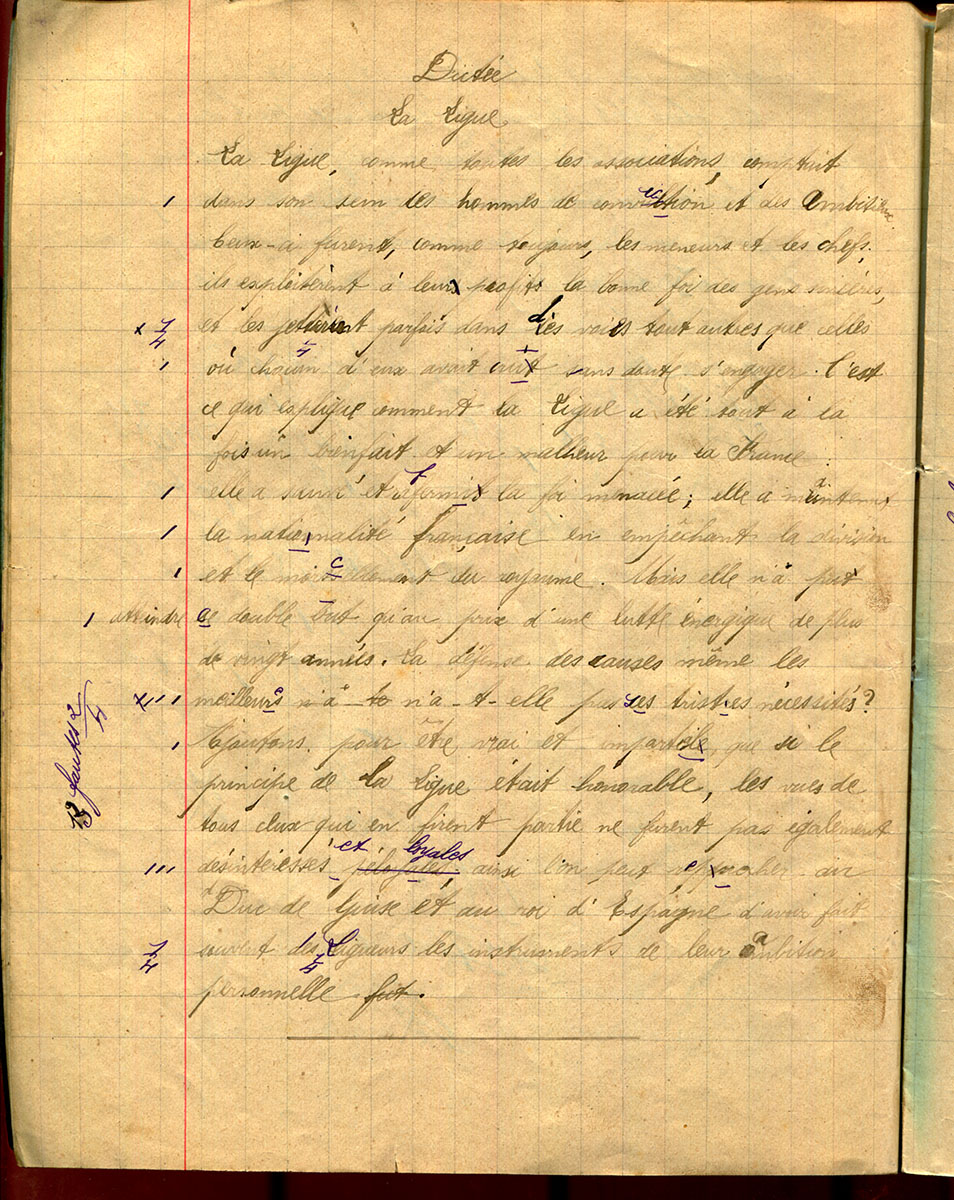 Dictée
La Ligue
La Ligue, comme toutes les associations, comptait
dans son sein des hommes de conviction et des ambitieux.
Ceux-ci furent, comme toujours, les meneurs et les chefs;
ils exploitèrent à leurs profits la bonne foi des gens sincères,
et les jetèrent parfois dans des voies tout autres que celles
où chacun d'eux avait cru sans doute s'engager. C'est
ce qui explique comment la Ligue a été tout à la
fois un bienfait et un malheur pour la France :
elle a sauvé et affermit la foi menacée; elle a maintenu
la nationnalité française en empêchant la division
et le morcellement du royaume. Mais elle n'a put
atteindre ce double but qu'au prix d'une lutte énergique de plus
de vingt années. La défense des causes même les
meilleurs n'a n'a-t-elle pas ses tristres nécessités?
Ajoutons, pour être vrai et que si le
principe de la Ligue était honorable, les vues de
tous ceux qui en firent partie ne furent pas également
et loyales
désintéressés ainsi l'on peut reprocher au
Duc de Guise et au roi d'Espagne d'avoir fait
souvent des Ligueurs les instruments de leur ambition
personnelle fut.
13 fautes 2/4